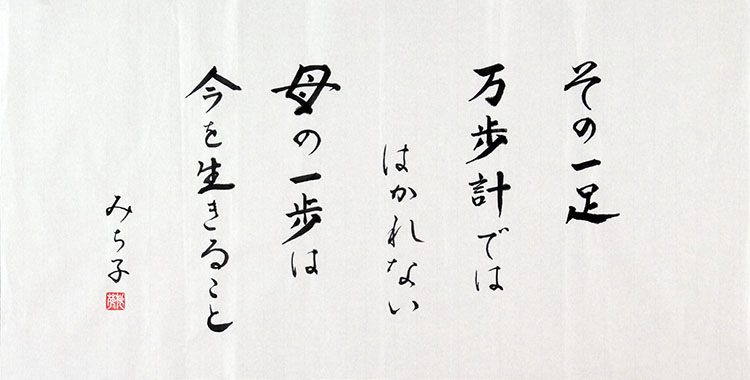 その一足
万歩計では
はかれない
母の一歩は
今を生きること
みち子